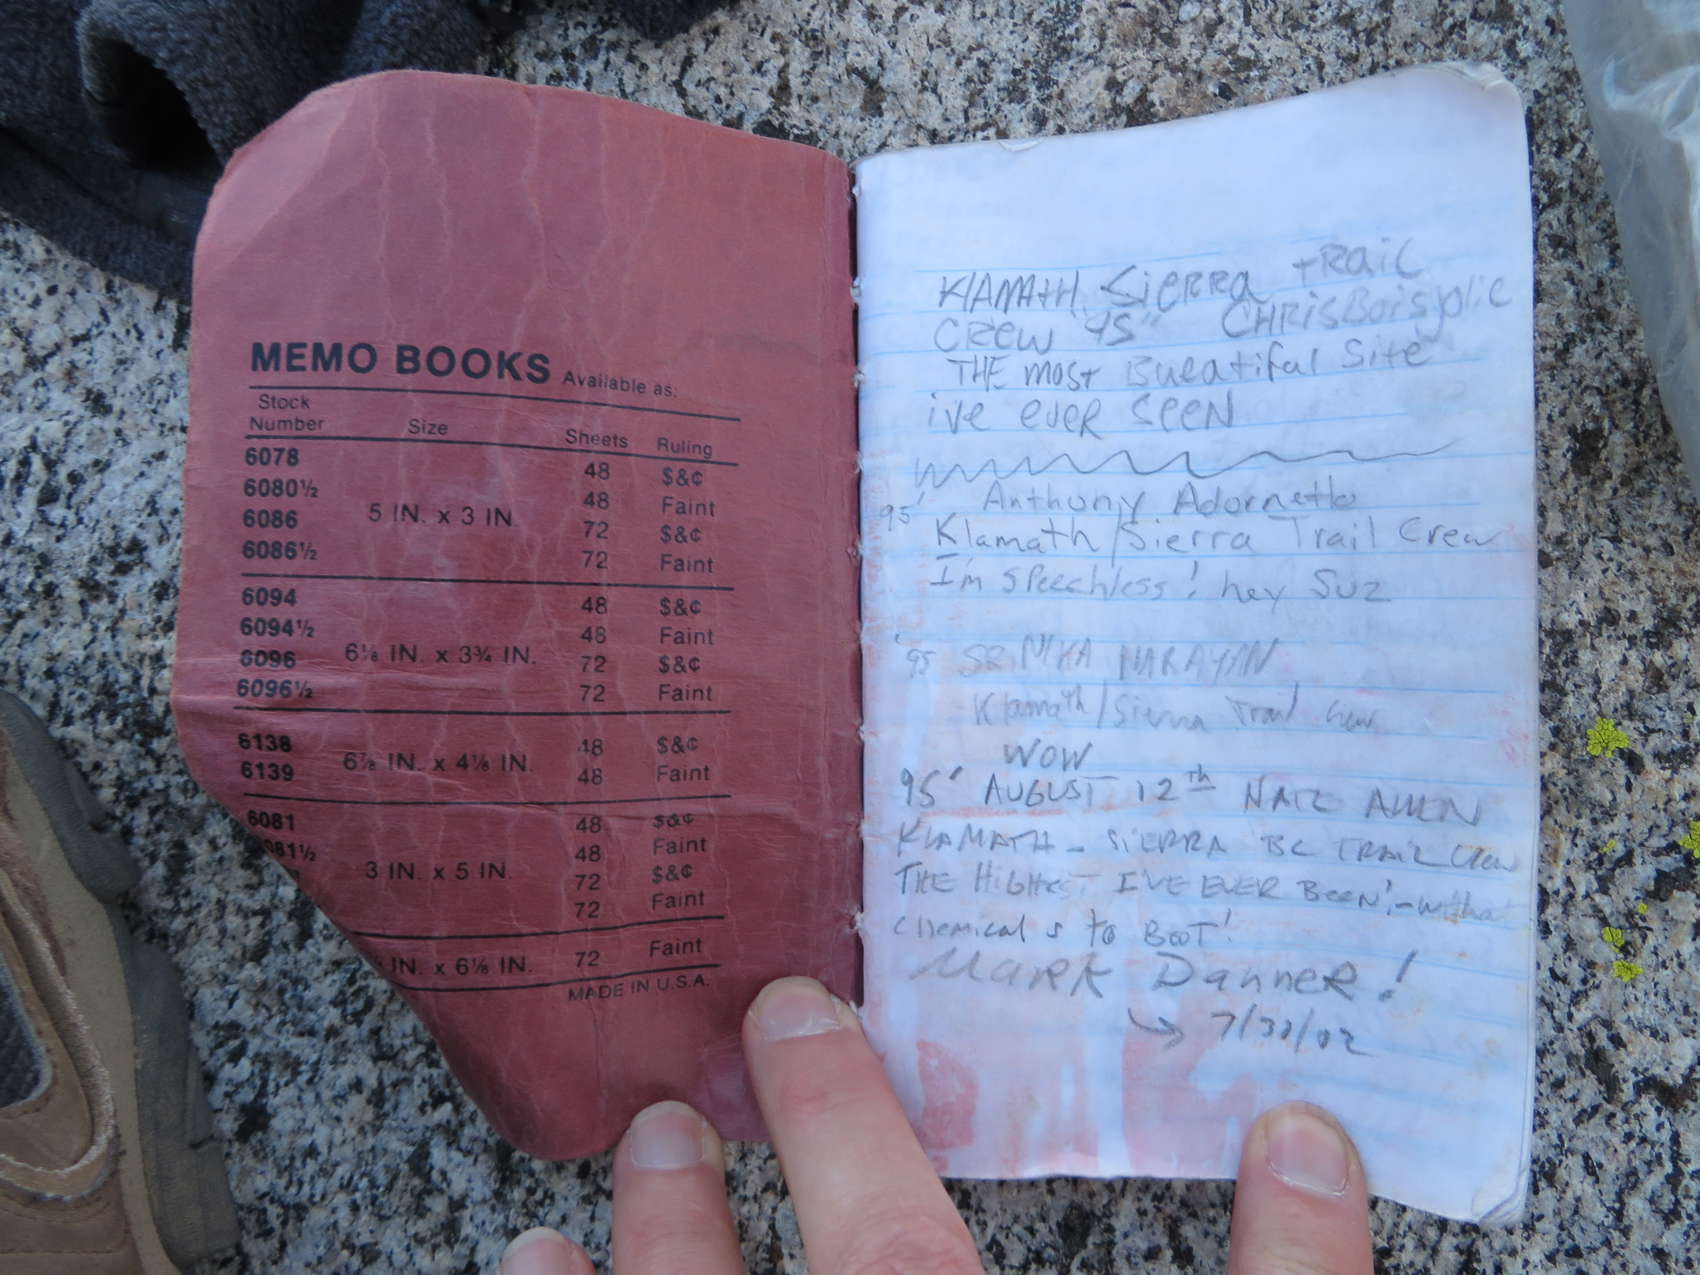 MEMO BOOKS Available as:
Stock
Number Size Sheets Ruling
6078 48 $&¢
6080½ 48 Faint
5 IN. x 3 IN.
6086 72 $&¢
6086½ 72 Faint
6094 48 $&¢
6094½ 48 Faint
6⅛ IN. x 3¾ IN.
6096 72 $&¢
6096½ 72 Faint
6138 48 $&¢
6⅞ IN. x 4⅛ IN.
6139 48 Faint
6081 48 $&¢
81½ 48 Faint
3 IN. x 5 IN.
72 $&¢
72 Faint
IN. x 6⅛ IN. 72 Faint
MADE IN U.S.A.
KlAMAtH Sierra tRail
CREW 95" CHRis
THE most Bueatiful Site
ive ever SEEN
95' Anthony Adornetto
Klamath/Sierra Trail Crew
I'm speechless! hey Suz
'95 NARAYAN
Klamath/Sierra Trail Crew
WOW
95' AUGUST 12th NATE ALLEN
KLAMATH - SIERRA BC TRAIL Crew
THE HIGHEST I'VE EVER BEEN! -
chemicals to BOOT!
Mark Danner!
→ 7/30/02